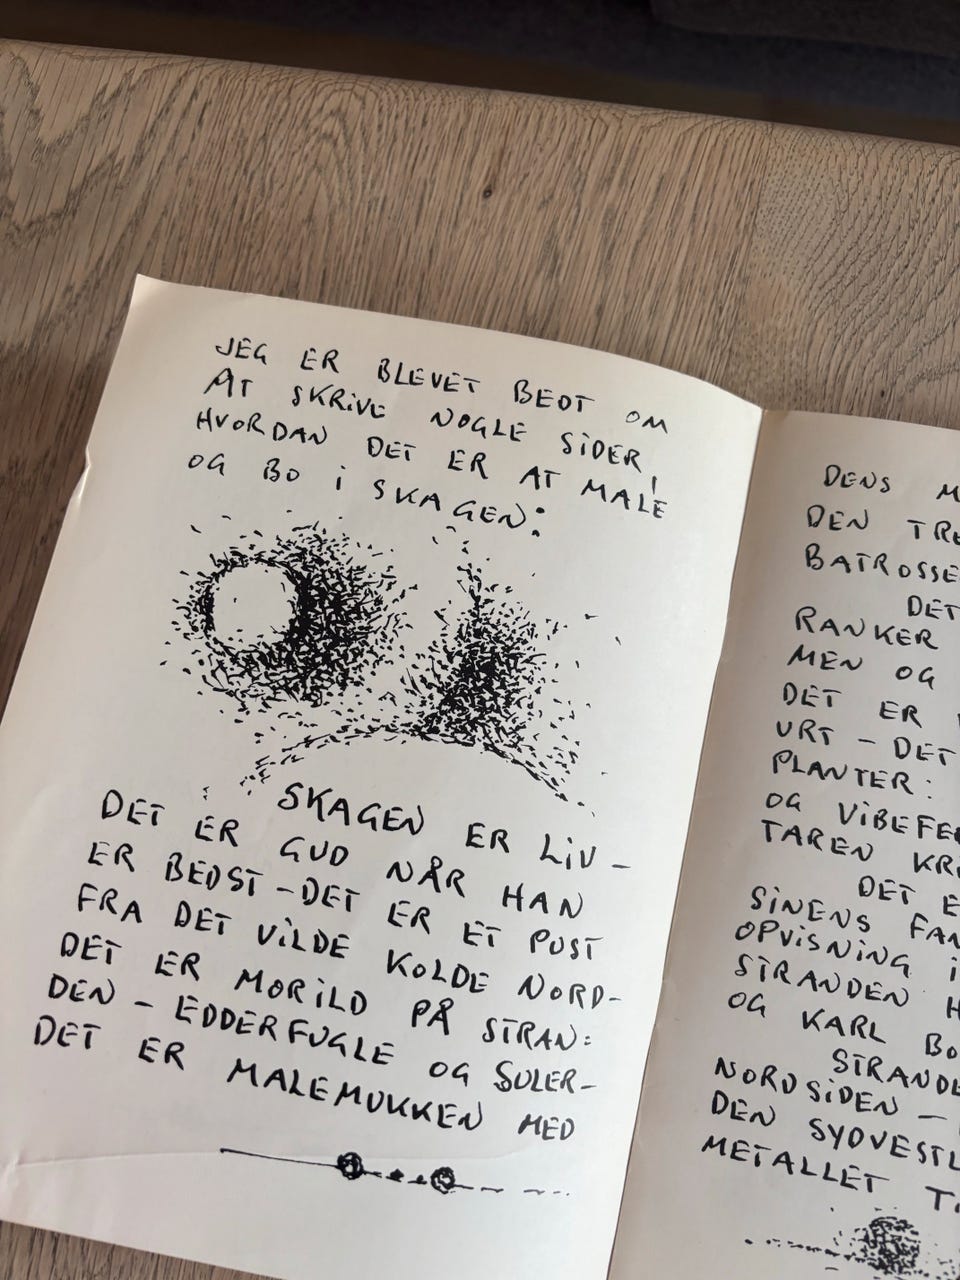 JEG ER BLEVET BEDT OM
AT SKRIVE NOGLE SIDER,
HVORDAN DET ER AT MALE
OG BO I SKAGEN:
SKAGEN ER LIV –
DET ER GUD NÅR HAN
ER BEDST – DET ER ET PUST
FRA DET VILDE KOLDE NORD –
DET ER MORILD PÅ STRAN:
DEN – EDDERFUGLE OG SULER –
DET ER MALEMUKKEN MED
DENS
DEN
BATROSSE
DET
RANKER
MEN OG
DET ER
URT – DET
PLANTER:
OG VIBEFE
TAREN
DET
SINENS
OPVISNING I
STRANDEN
OG KARL
STRANDE
NORDSIDEN –
DEN SYDVESTL
METALLET